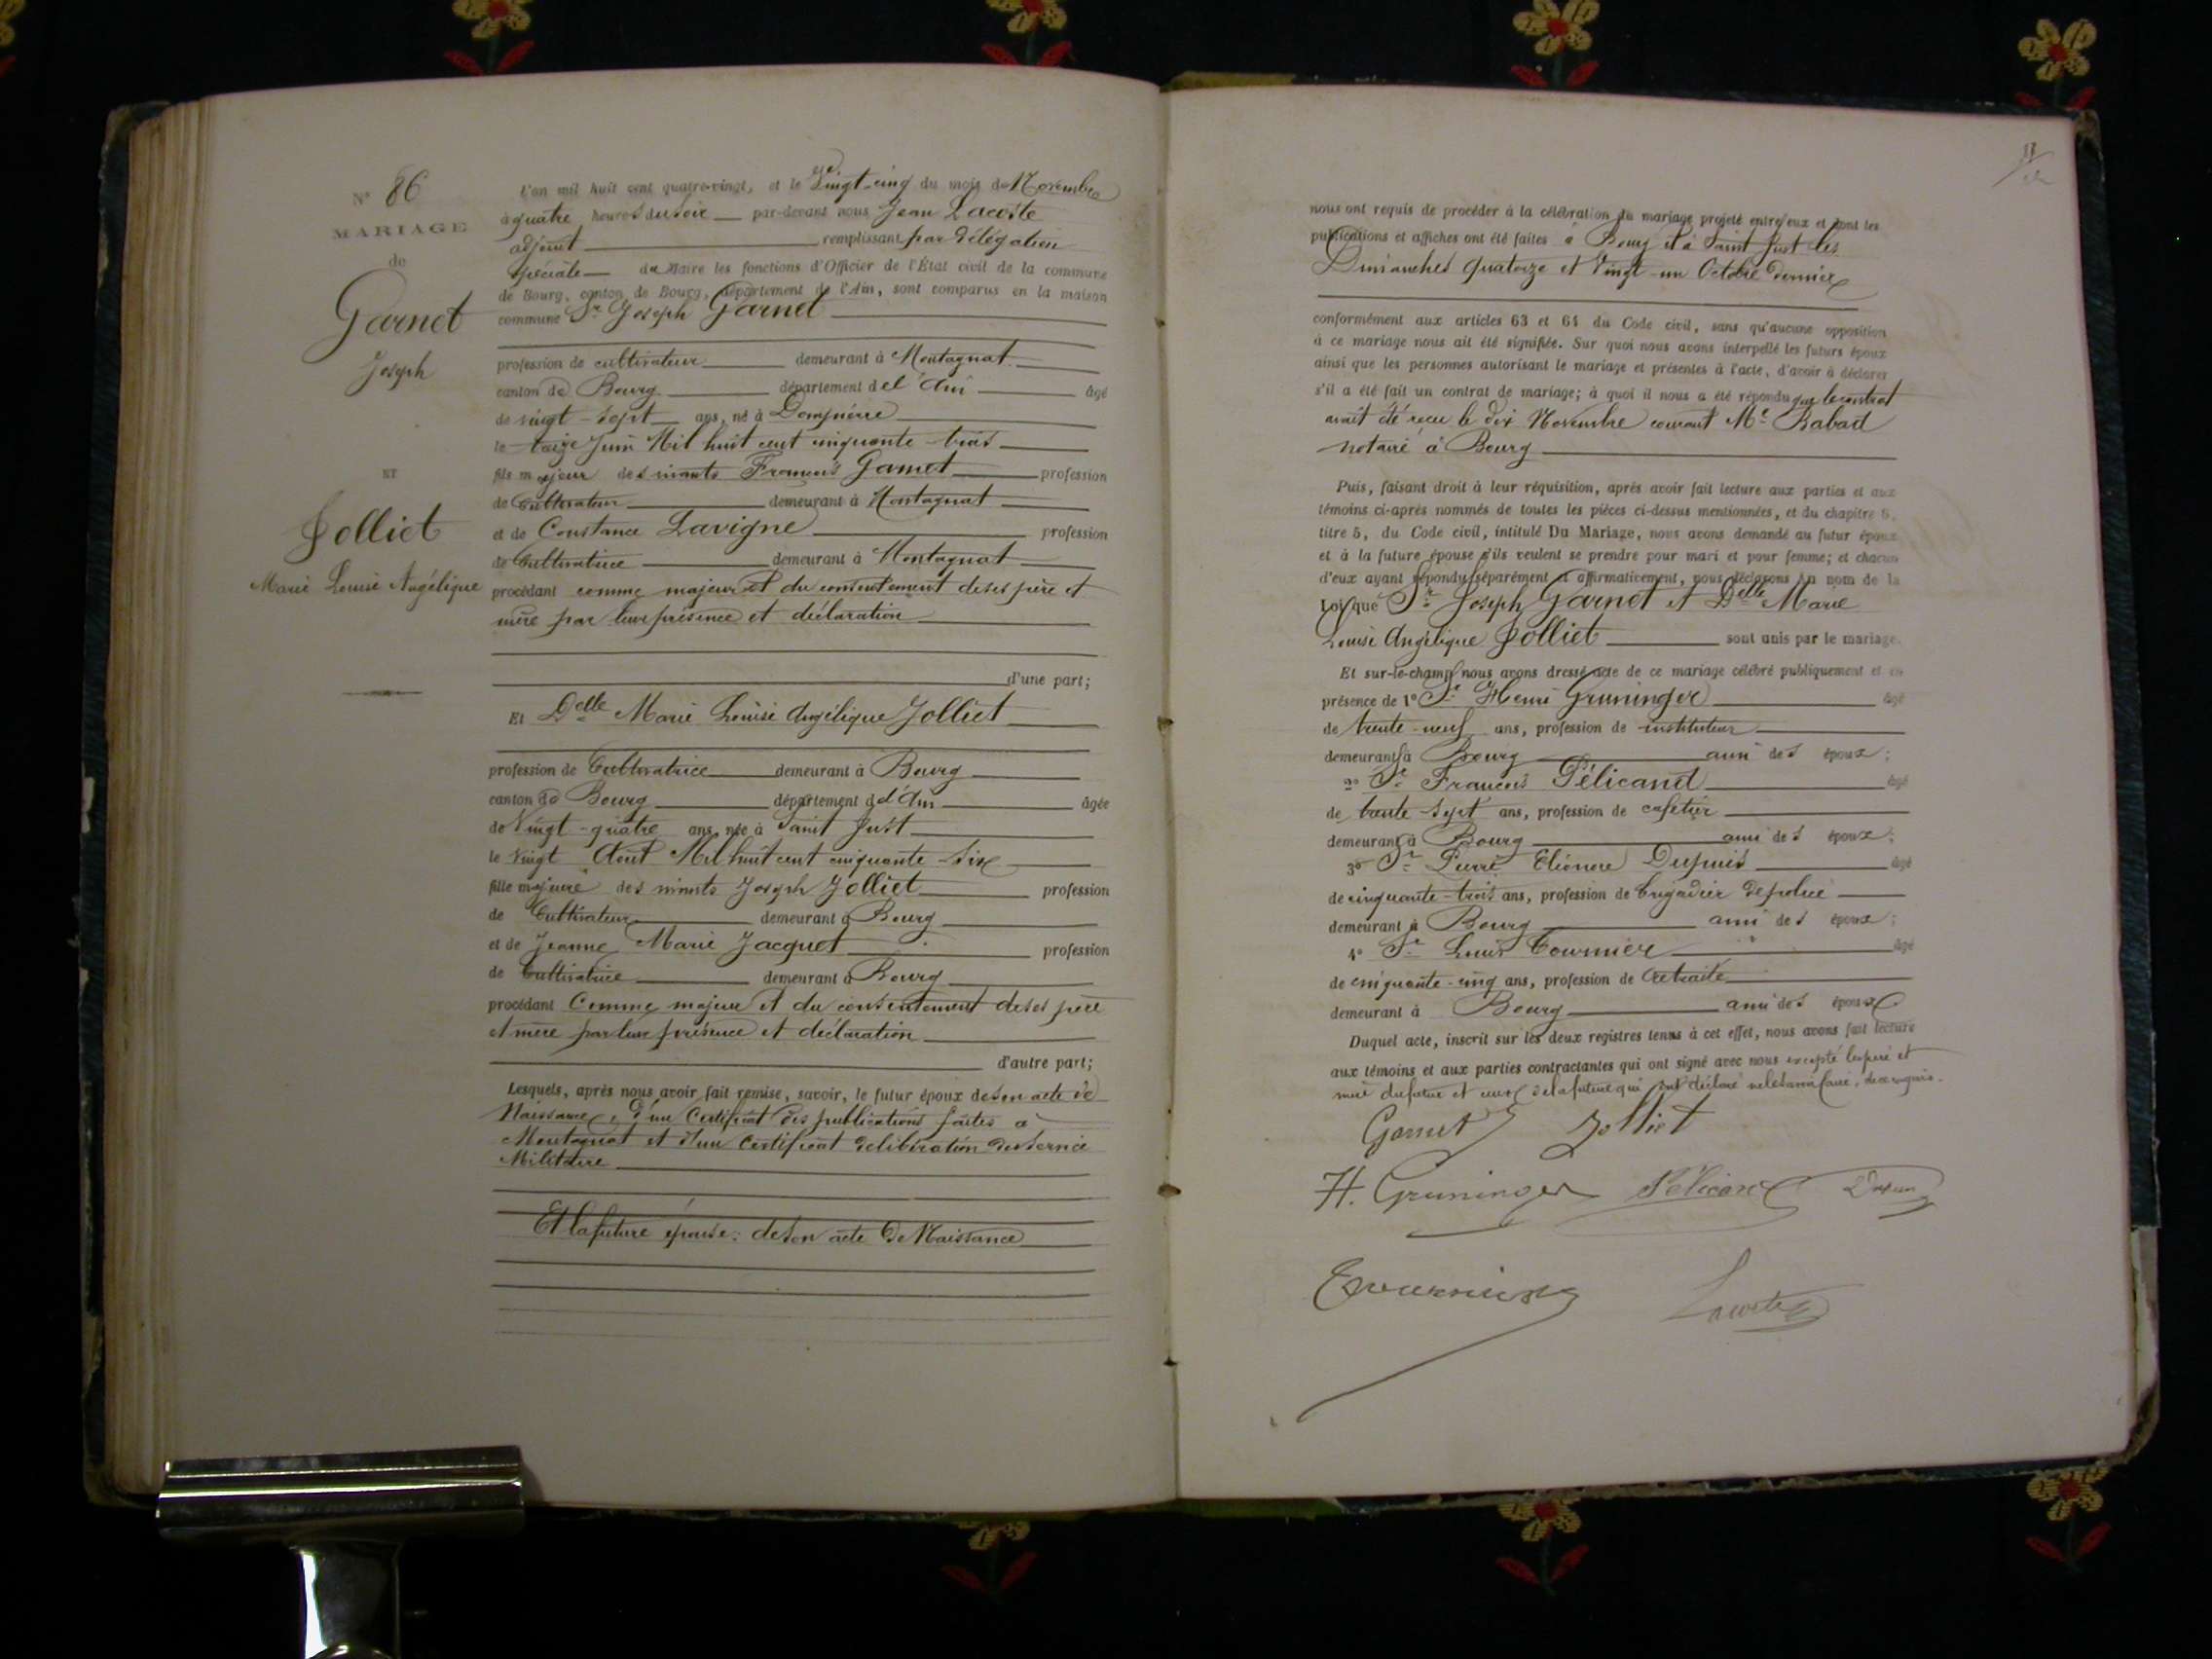 N° 86
MARIAGE
de
Garnet
Joseph
ET
Jolliet
Marie Louise Angélique
L'an mil huit cent quatre-vingt, et le Vingt-cinq du mois de Novembre
à quatre heures du soir par-devant nous Jean Lacoste
adjoint remplissant par délégation
spéciale du Maire les fonctions d'Officier de l'État civil de la commune
de Bourg, canton de Bourg, département de l'Ain, sont comparus en la maison
commune Sr Joseph Garnet
profession de cultivateur demeurant à Montagnat
canton de Bourg département de l'Ain âgé
de vingt-sept ans, né à Dompierre
le treize Juin Mil huit cent cinquante trois
fils majeur des vivants François Garnet profession
de Cultivateur demeurant à Montagnat
et de Constance Lavigne profession
de Cultivatrice demeurant à Montagnat
procédant comme majeur et du consentement de ses père et
mère par leur présence et déclaration
d'une part;
Et Delle Marie Louise Angélique Jolliet
profession de Cultivatrice demeurant à Bourg
canton de Bourg département de l'Ain âgée
de Vingt-quatre ans, née à Saint Just
le vingt Aout Mil huit cent cinquante-six
fille majeure des vivants Joseph Jolliet profession
de Cultivateur demeurant à Bourg
et de Jeanne Marie Jacquet profession
de Cultivatrice demeurant à Bourg
procédant Comme majeur et du consentement de ses père
et mère par leur présence et déclaration
d'autre part;
Lesquels, après nous avoir fait remise, savoir, le futur époux de son acte de
Naissance, d'un Certificat des publications faites à
Montagnat et d'un Certificat de libération du service
Militaire
Et la future épouse: de son acte de Naissance
nous ont requis de procéder à la célébration du mariage projeté entre eux et dont les
publications et affiches ont été faites à Bourg et à Saint Just les
Dimanches quatorze et Vingt-un Octobre dernier
conformément aux articles 63 et 64 du Code civil, sans qu'aucune opposition
à ce mariage nous ait été signifiée. Sur quoi nous avons interpellé les futurs époux
ainsi que les personnes autorisant le mariage et présentes à l'acte, d'avoir à déclarer
s'il a été fait un contrat de mariage; à quoi il nous a été répondu que le contrat
avait été reçu le dix Novembre courant Me Rabad
notaire à Bourg
Puis, faisant droit à leur réquisition, après avoir fait lecture aux parties et aux
témoins ci-après nommés de toutes les pièces ci-dessus mentionnées, et du chapitre 6,
titre 5, du Code civil, intitulé Du Mariage, nous avons demandé au futur époux
et à la future épouse s'ils veulent se prendre pour mari et pour femme; et chacun
d'eux ayant répondu séparément et affirmativement, nous déclarons au nom de la
Loi que Sr Joseph Garnet et Delle Marie
Louise Angélique Jolliet sont unis par le mariage.
Et sur-le-champ nous avons dressé acte de ce mariage célébré publiquement et en
présence de 1° Sr Henri Gruninger âgé
de trente-neuf ans, profession de instituteur
demeurant à Bourg ami des époux;
2° Sr François Pélicand âgé
de trente-sept ans, profession de cafetier
demeurant à Bourg ami des époux;
3° Sr Pierre Eléonore Dupuis âgé
de cinquante-trois ans, profession de brigadier de police
demeurant à Bourg ami des époux;
4° Sr Louis Tournier âgé
de cinquante-cinq ans, profession de retraité
demeurant à Bourg ami des époux
Duquel acte, inscrit sur les deux registres tenus à cet effet, nous avons fait lecture
aux témoins et aux parties contractantes qui ont signé avec nous excepté les père et
mère du futur et ceux de la future qui ont déclaré ne le savoir faire, de ce requis.
Garnet Jolliet
H. Gruninger Pélicand Dupuis
Tournier Lacoste